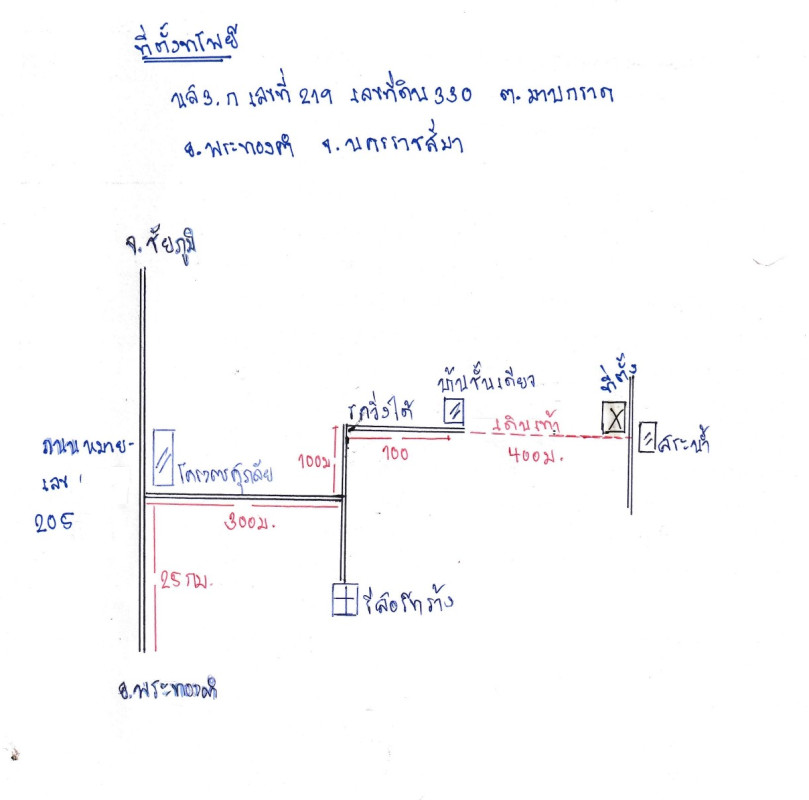 ที่ตั้งทรัพย์
นส3.ก เลขที่ 219 เลขที่ดิน 330 ต.มาบกราด
อ.พระทองคำ จ.นครราชสีมา
จ.ชัยภูมิ
ที่ตั้ง
บ้านชั้นเดียว
รถวิ่งได้
เดินเท้า
ถนนหมาย-
เลข
205
สระน้ำ
100ม
100
400ม.
300ม.
25กม.
รีสอร์ทร้าง
อ.พระทองคำ